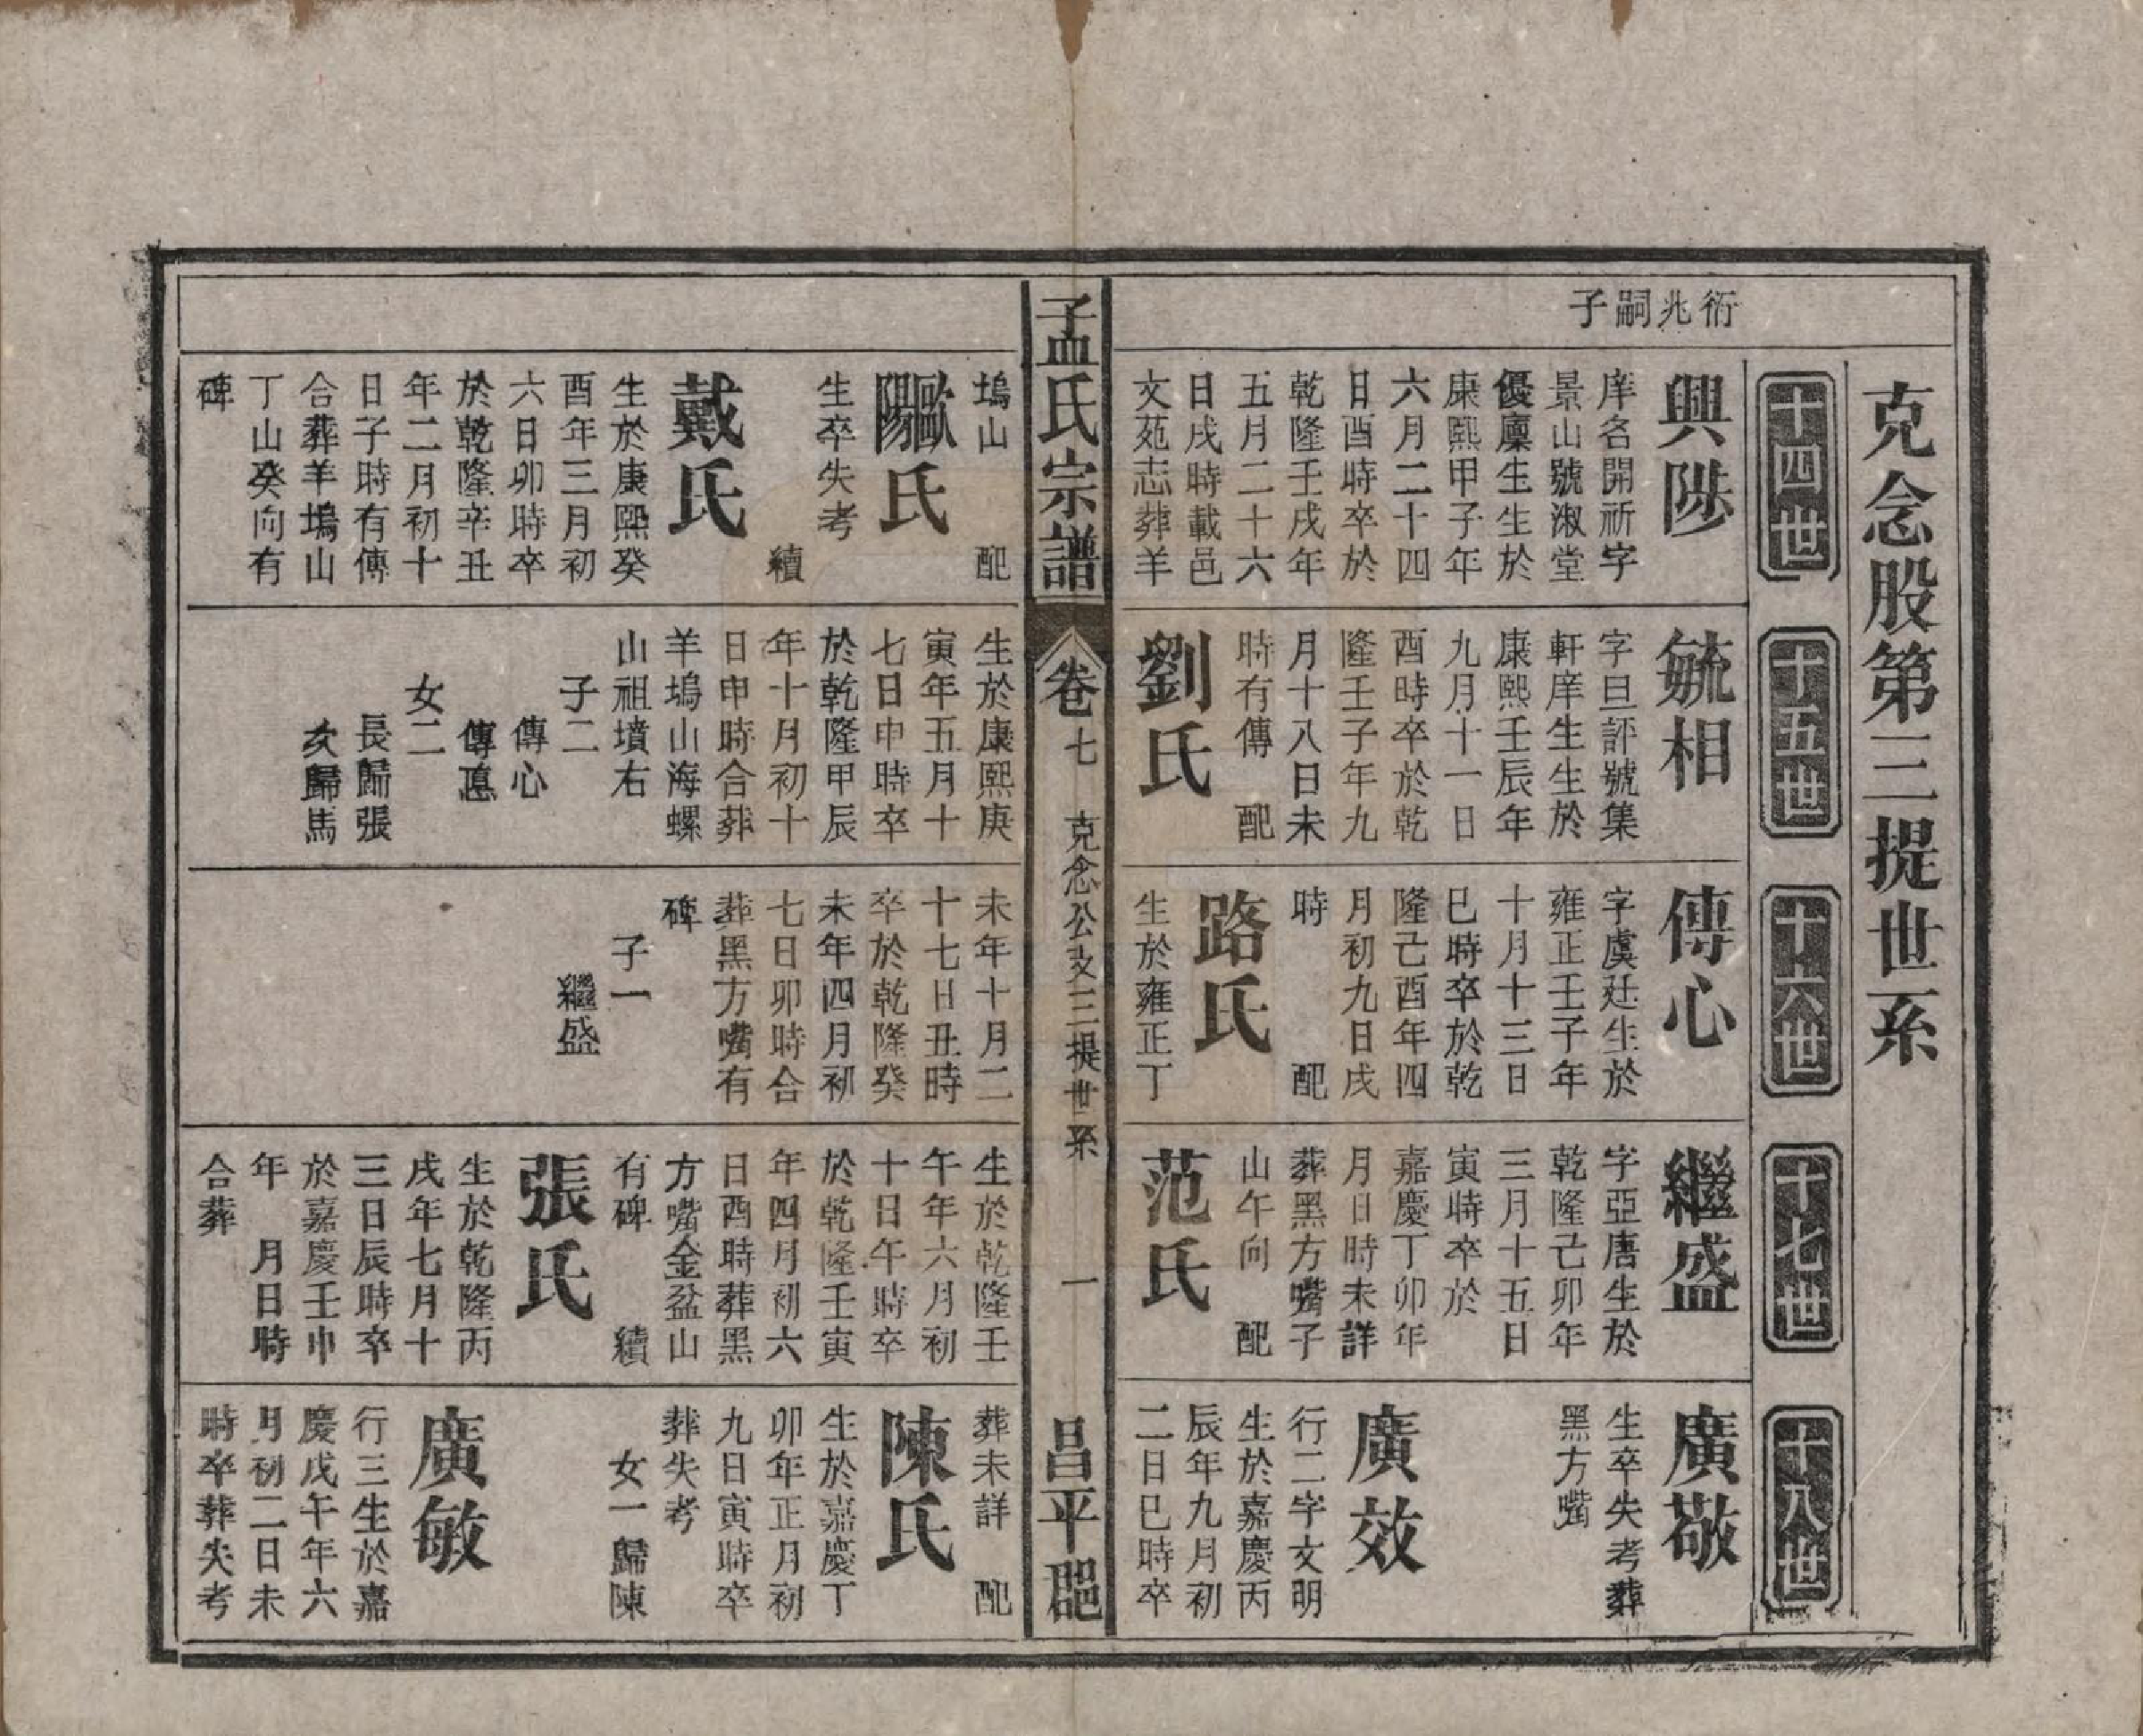 克念股第三提世系
衍兆嗣子
十四世
興陟
庠名開祈字
景山號淑堂
優廩生生於
康熙甲子年
六月二十四
日酉時卒於
乾隆壬戌年
五月二十六
日戌時載邑
文苑志葬羊
塢山 配
歐陽氏
生卒失考
續
戴氏
生於康熙癸
酉年三月初
六日卯時卒
於乾隆辛丑
年二月初十
日子時有傳
合葬羊塢山
丁山癸向有
碑
十五世
毓相
字旦評號集
軒庠生生於
康熙壬辰年
九月十一日
酉時卒於乾
隆壬子年九
月十八日未
時有傳 配
劉氏
生於康熙庚
寅年五月十
七日申時卒
於乾隆甲辰
年十月初十
日申時合葬
羊塢山海螺
山祖墳右
子二
傳心
傳惪
女二
長歸張
次歸馬
十六世
傳心
字虞廷生於
雍正壬子年
十月十三日
巳時卒於乾
隆己酉年四
月初九日戌
時 配
路氏
生於雍正丁
未年十月二
十七日丑時
卒於乾隆癸
未年四月初
七日卯時合
葬黑方嘴有
碑
子一
繼盛
十七世
繼盛
字亞唐生於
乾隆己卯年
三月十五日
寅時卒於
嘉慶丁卯年
月日時未詳
葬黑方嘴子
山午向 配
范氏
生於乾隆壬
午年六月初
十日午時卒
於乾隆壬寅
年四月初六
日酉時葬黑
方嘴金盆山
有碑 續
張氏
生於乾隆丙
戌年七月十
三日辰時卒
於嘉慶壬申
年 月日時
合葬
十八世
廣敬
生卒失考葬
黑方嘴
廣效
行二字文明
生於嘉慶丙
辰年九月初
二日巳時卒
葬未詳 配
陳氏
生於嘉慶丁
卯年正月初
九日寅時卒
葬失考
女一歸陳
廣敏
行三生於嘉
慶戊午年六
月初二日未
時卒葬失考
孟氏宗譜
卷七 克念公支三提世系 一 昌平郡